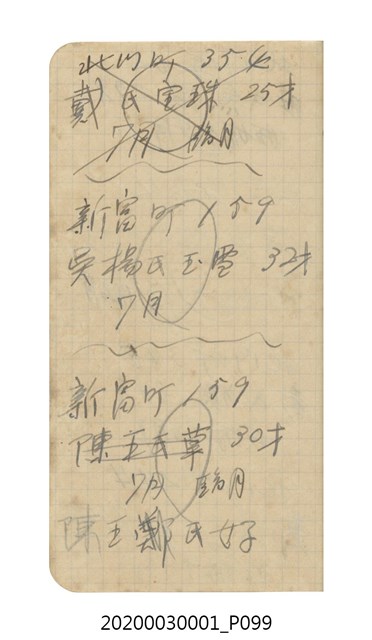 北門町 354
戴氏宝珠 25才
7月 臨月
新富町 159
吳楊氏玉雪 32才
7月
新富町 159
陳王氏草 30才
7月 臨月
陳王鄭氏好
20200030001_P099